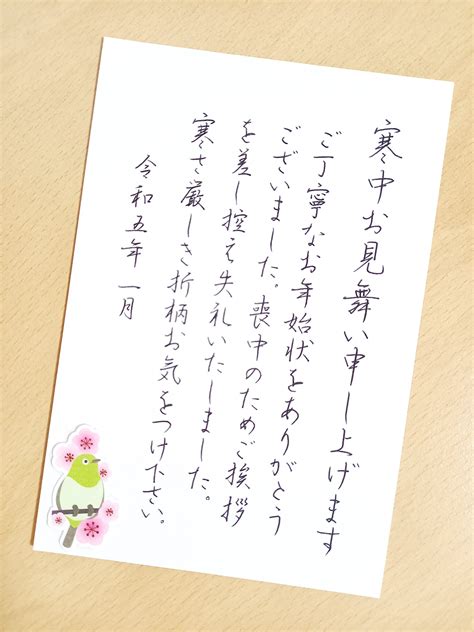 寒中お見舞い申し上げます
ご丁寧なお年始状をありがとう
ございました。喪中のためご挨拶
を差し控え失礼いたしました。
寒さ厳しき折柄お気をつけ下さい。
令和五年一月